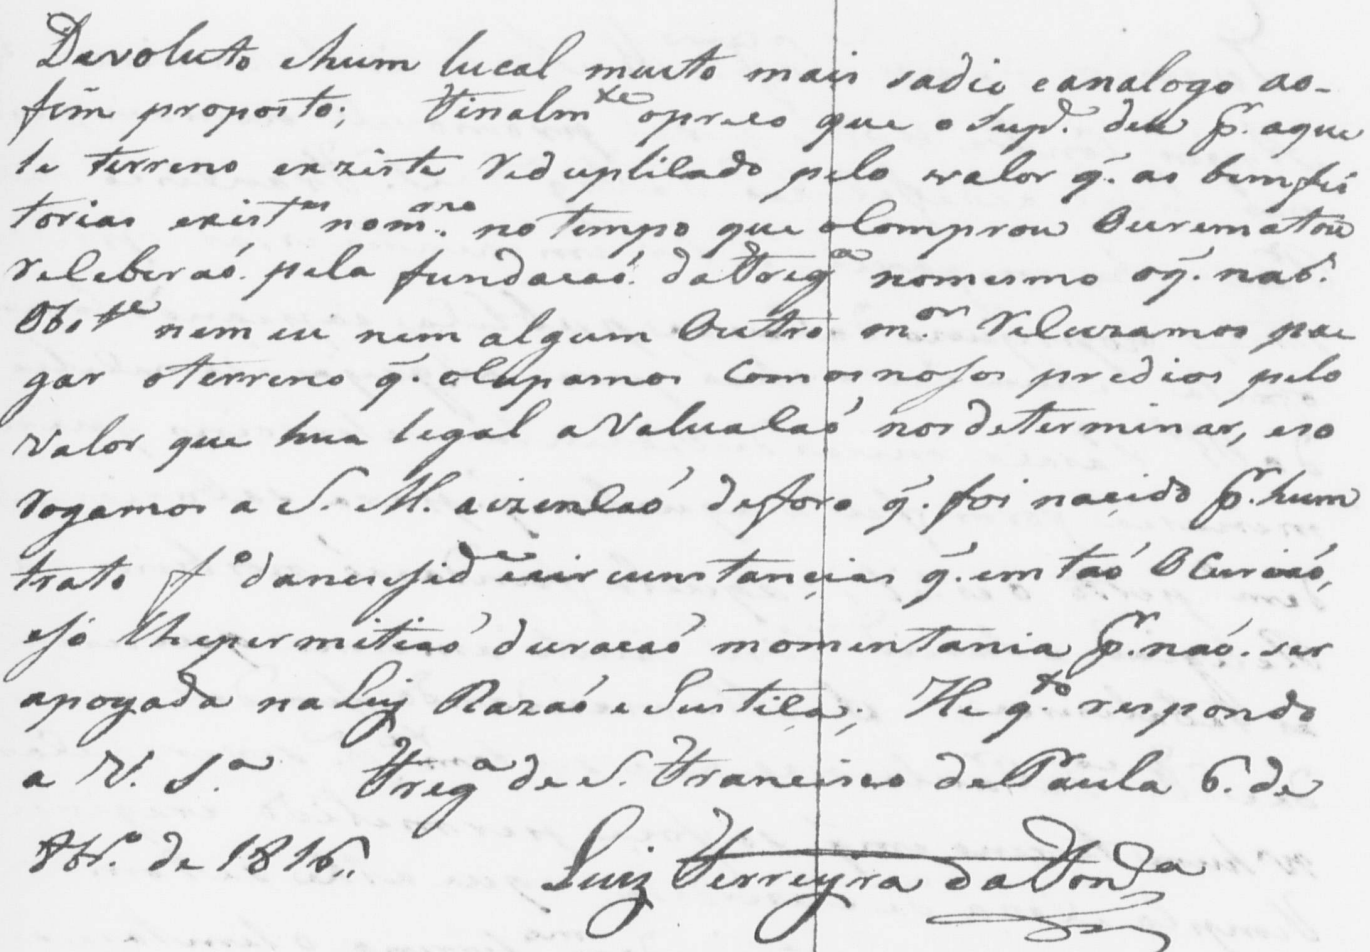 Devoluto ehum lucal muito mais sadio eanalogo ao-
fim proposto; Finalm.te opreco que o Sup.e deu p.r aque
le terreno exziste Reduplicado pelo valor q̃. as bemfei
torias exist.es nom.mo notempo que oComprou OuremaTou
Receberaó. pela fundacaó. daFreg.a nomesmo oq̃. naó.
Obst.e nem eu nem algum Outro m.or Recuzamos pa
gar oterreno q̃. oCupamos Comosnosos predios pelo
valor que hua legal aValuaCaó nosdeTerminar, eso
Rogamos a S. M. aizencaó deforo q̃. foi nacido p.r hum
trato f.o danecessid.e ecircunstancias q̃. emtaó OCuriaó,
eso lhepermitiaó duracaó momentania p.r naó. ser
apoyada naLey Razaó e Justiça; He q.to respondo
a V. S.a Freg.a de S. Francisco dePaula 6. de
8br.o de 1816..
Luiz Ferreyra daFon.ca